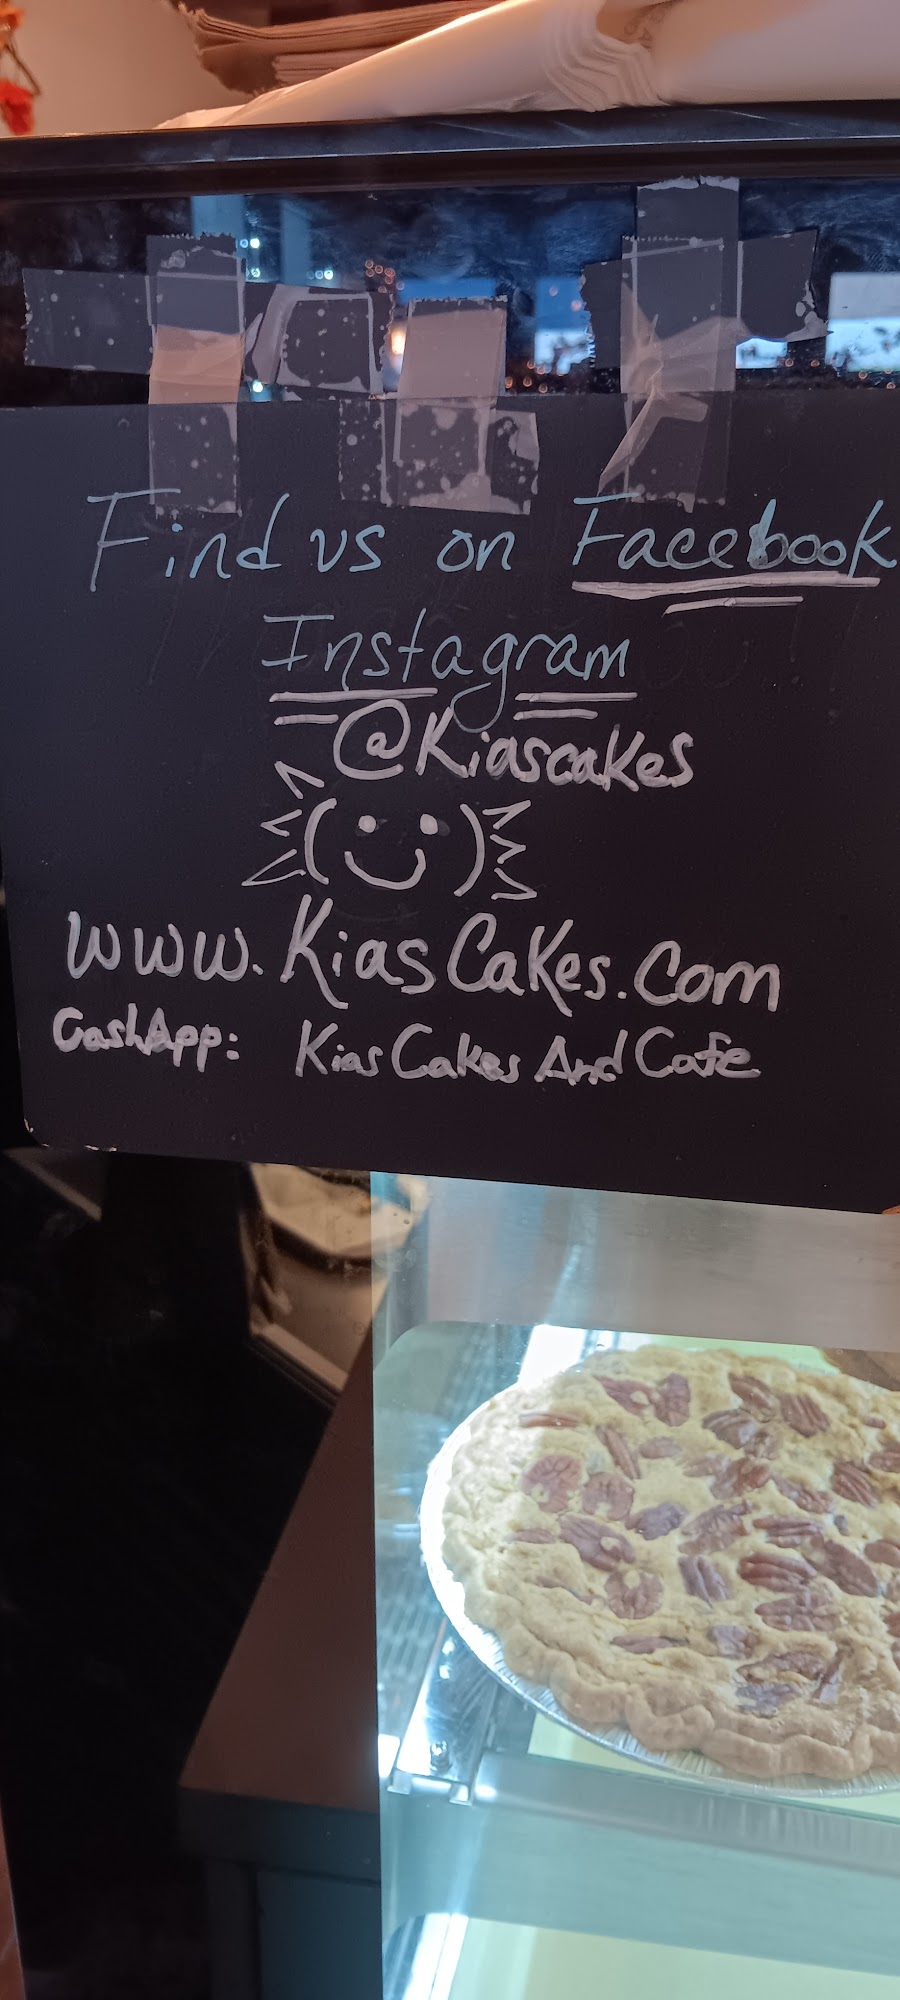 Find us on Facebook
Instagram
@Kiascakes
www.KiasCakes.com
CashApp: Kias Cakes And Cafe